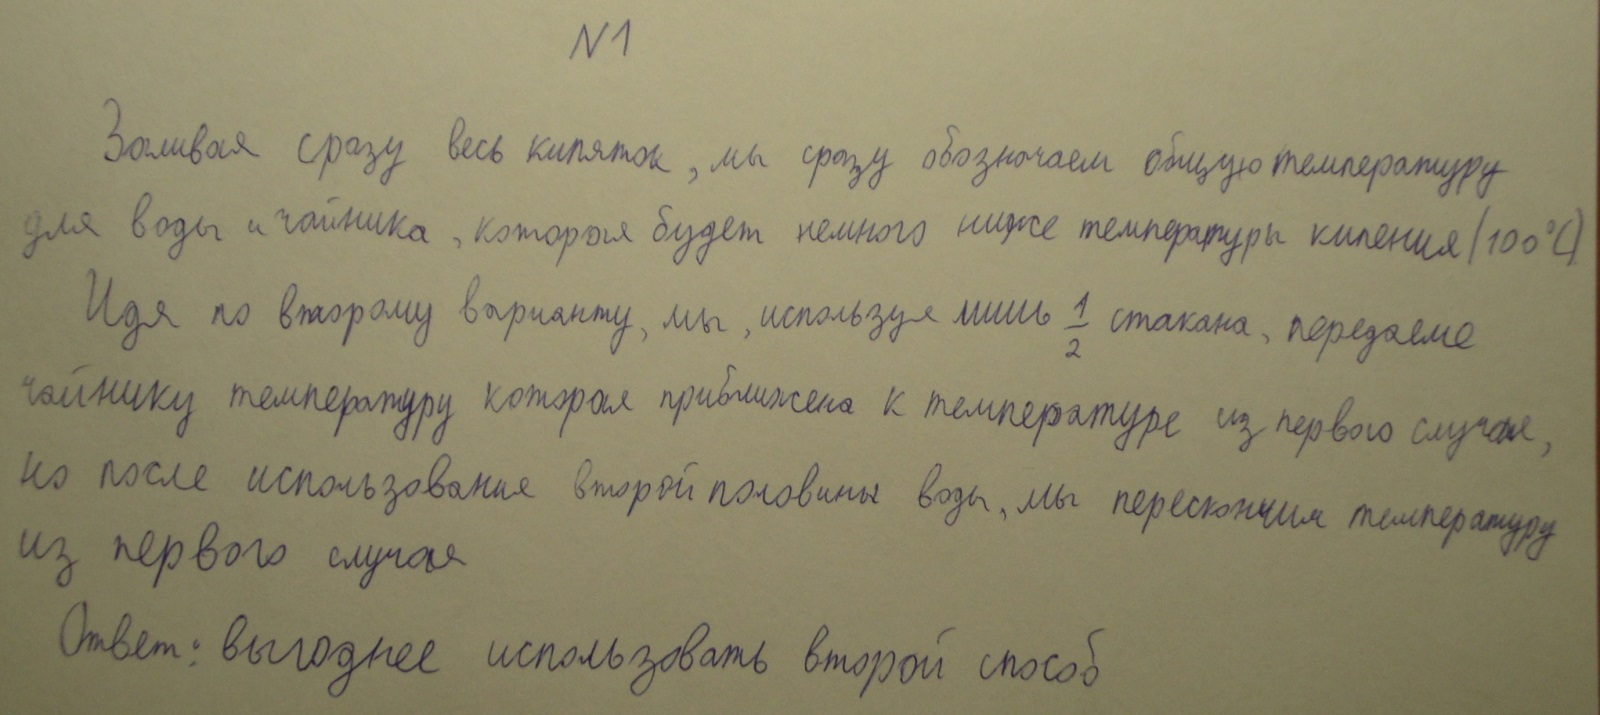 N1
Заливая сразу весь кипяток, мы сразу обозначаем общую температуру
для воды и чайника, которая будет немного ниже температуры кипения (100°C)
Идя по второму варианту, мы, используя лишь 1/2 стакана, передаеме
чайнику температуру которая приближена к температуре из первого случая,
но после использования второй половины воды, мы перескочим температуру
из первого случая
Ответ: выгоднее использовать второй способ